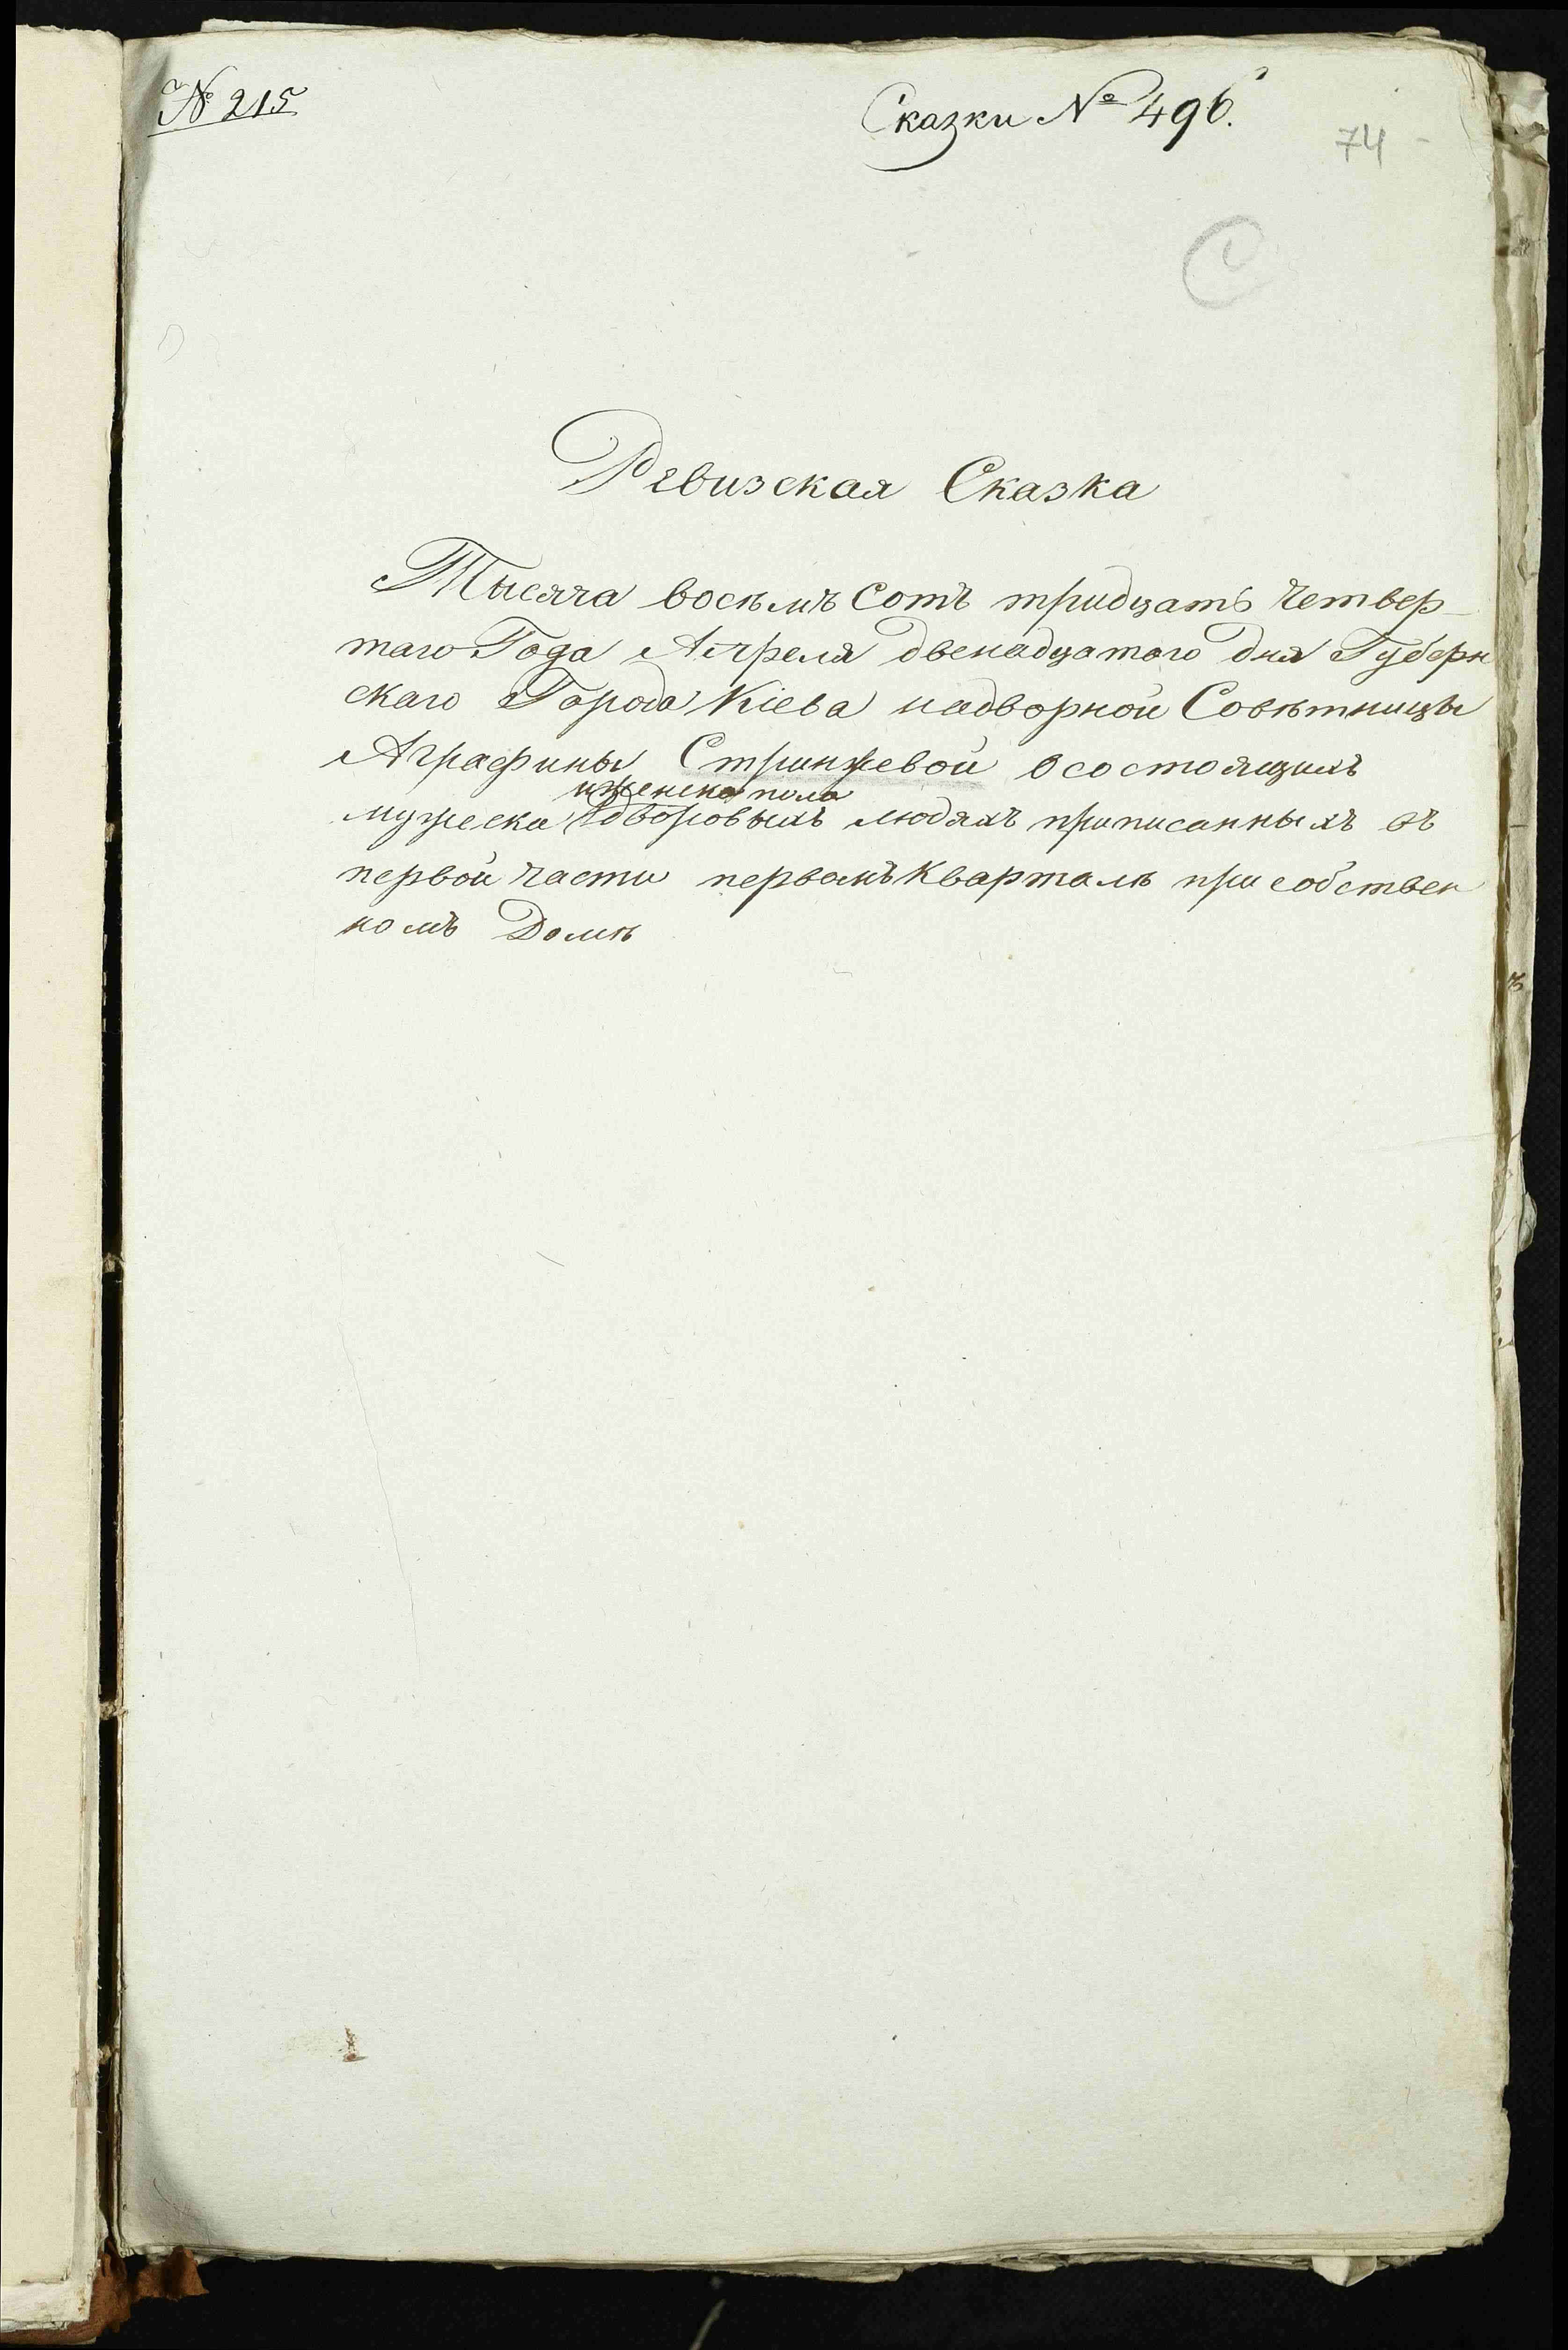 № 215
Сказки № 496.
74
Ревизская Сказка
Тысяча восѣмъ Сотъ тридцать Четвер-
таго Года Апреля двенадцатого дня Губерн
скаго Города Кіева надворной Совѣтницы
Аграфины Стринжевой о состоящихъ
и женска пола
мужеска дворовыхъ людяхъ приписанныхъ въ
первой части первомъ Кварталѣ при собствен
номъ Домѣ